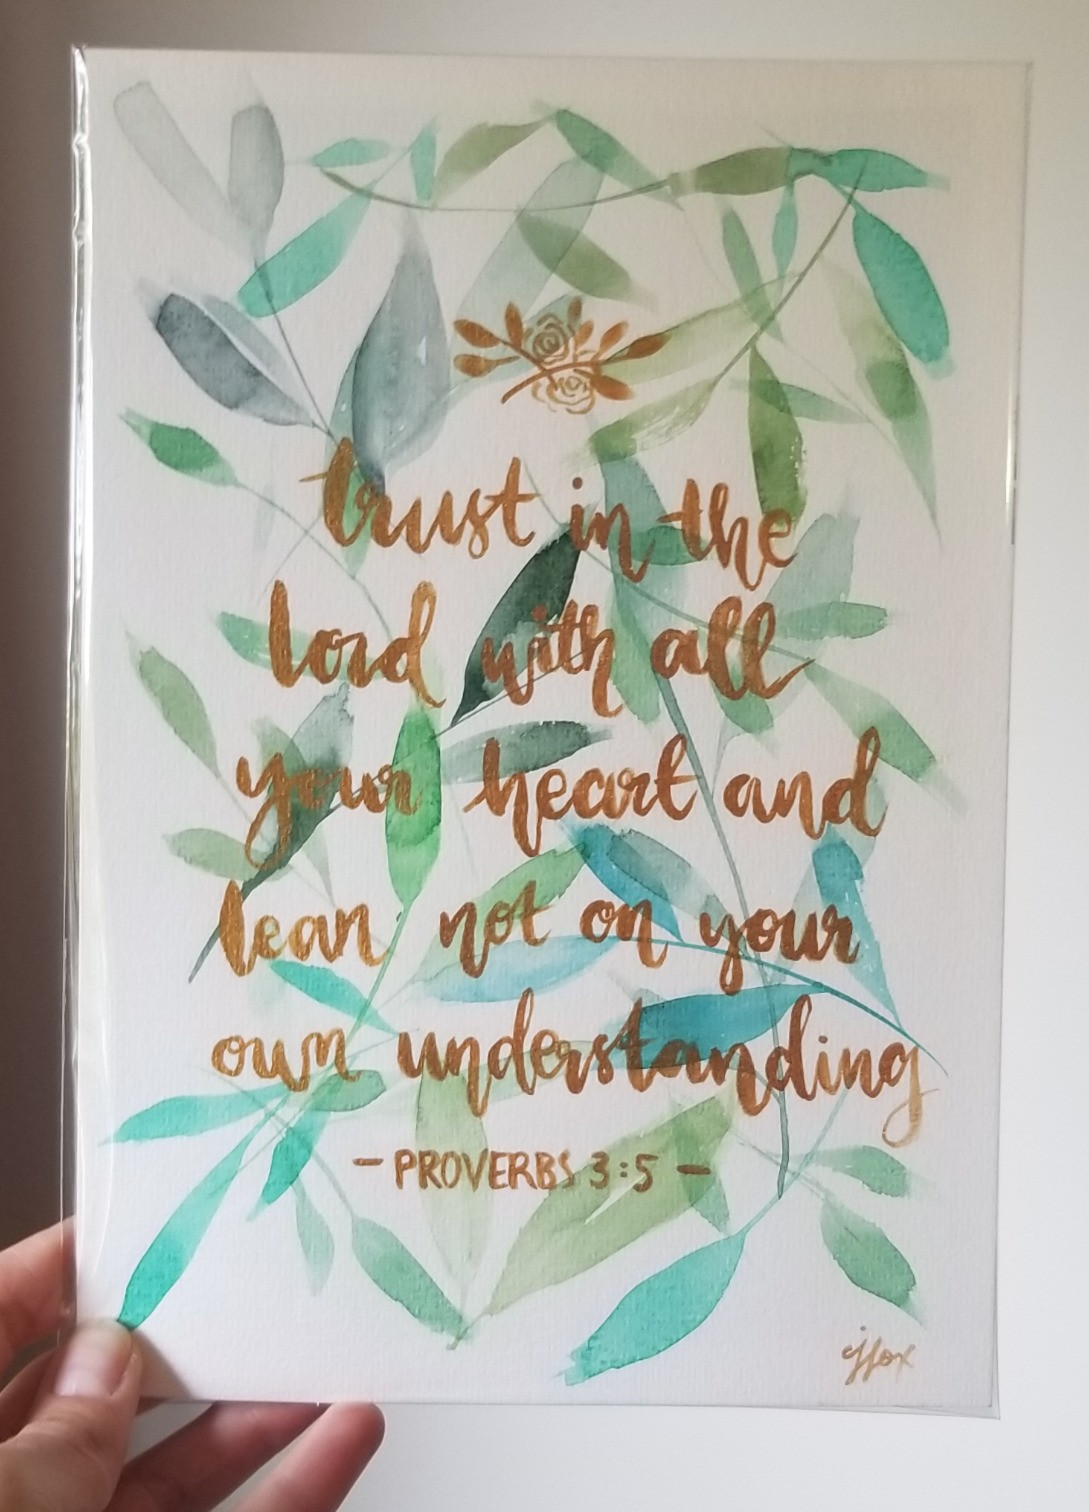 trust in the
lord with all
your heart and
lean not on your
own understanding
- PROVERBS 3:5 -
jfox